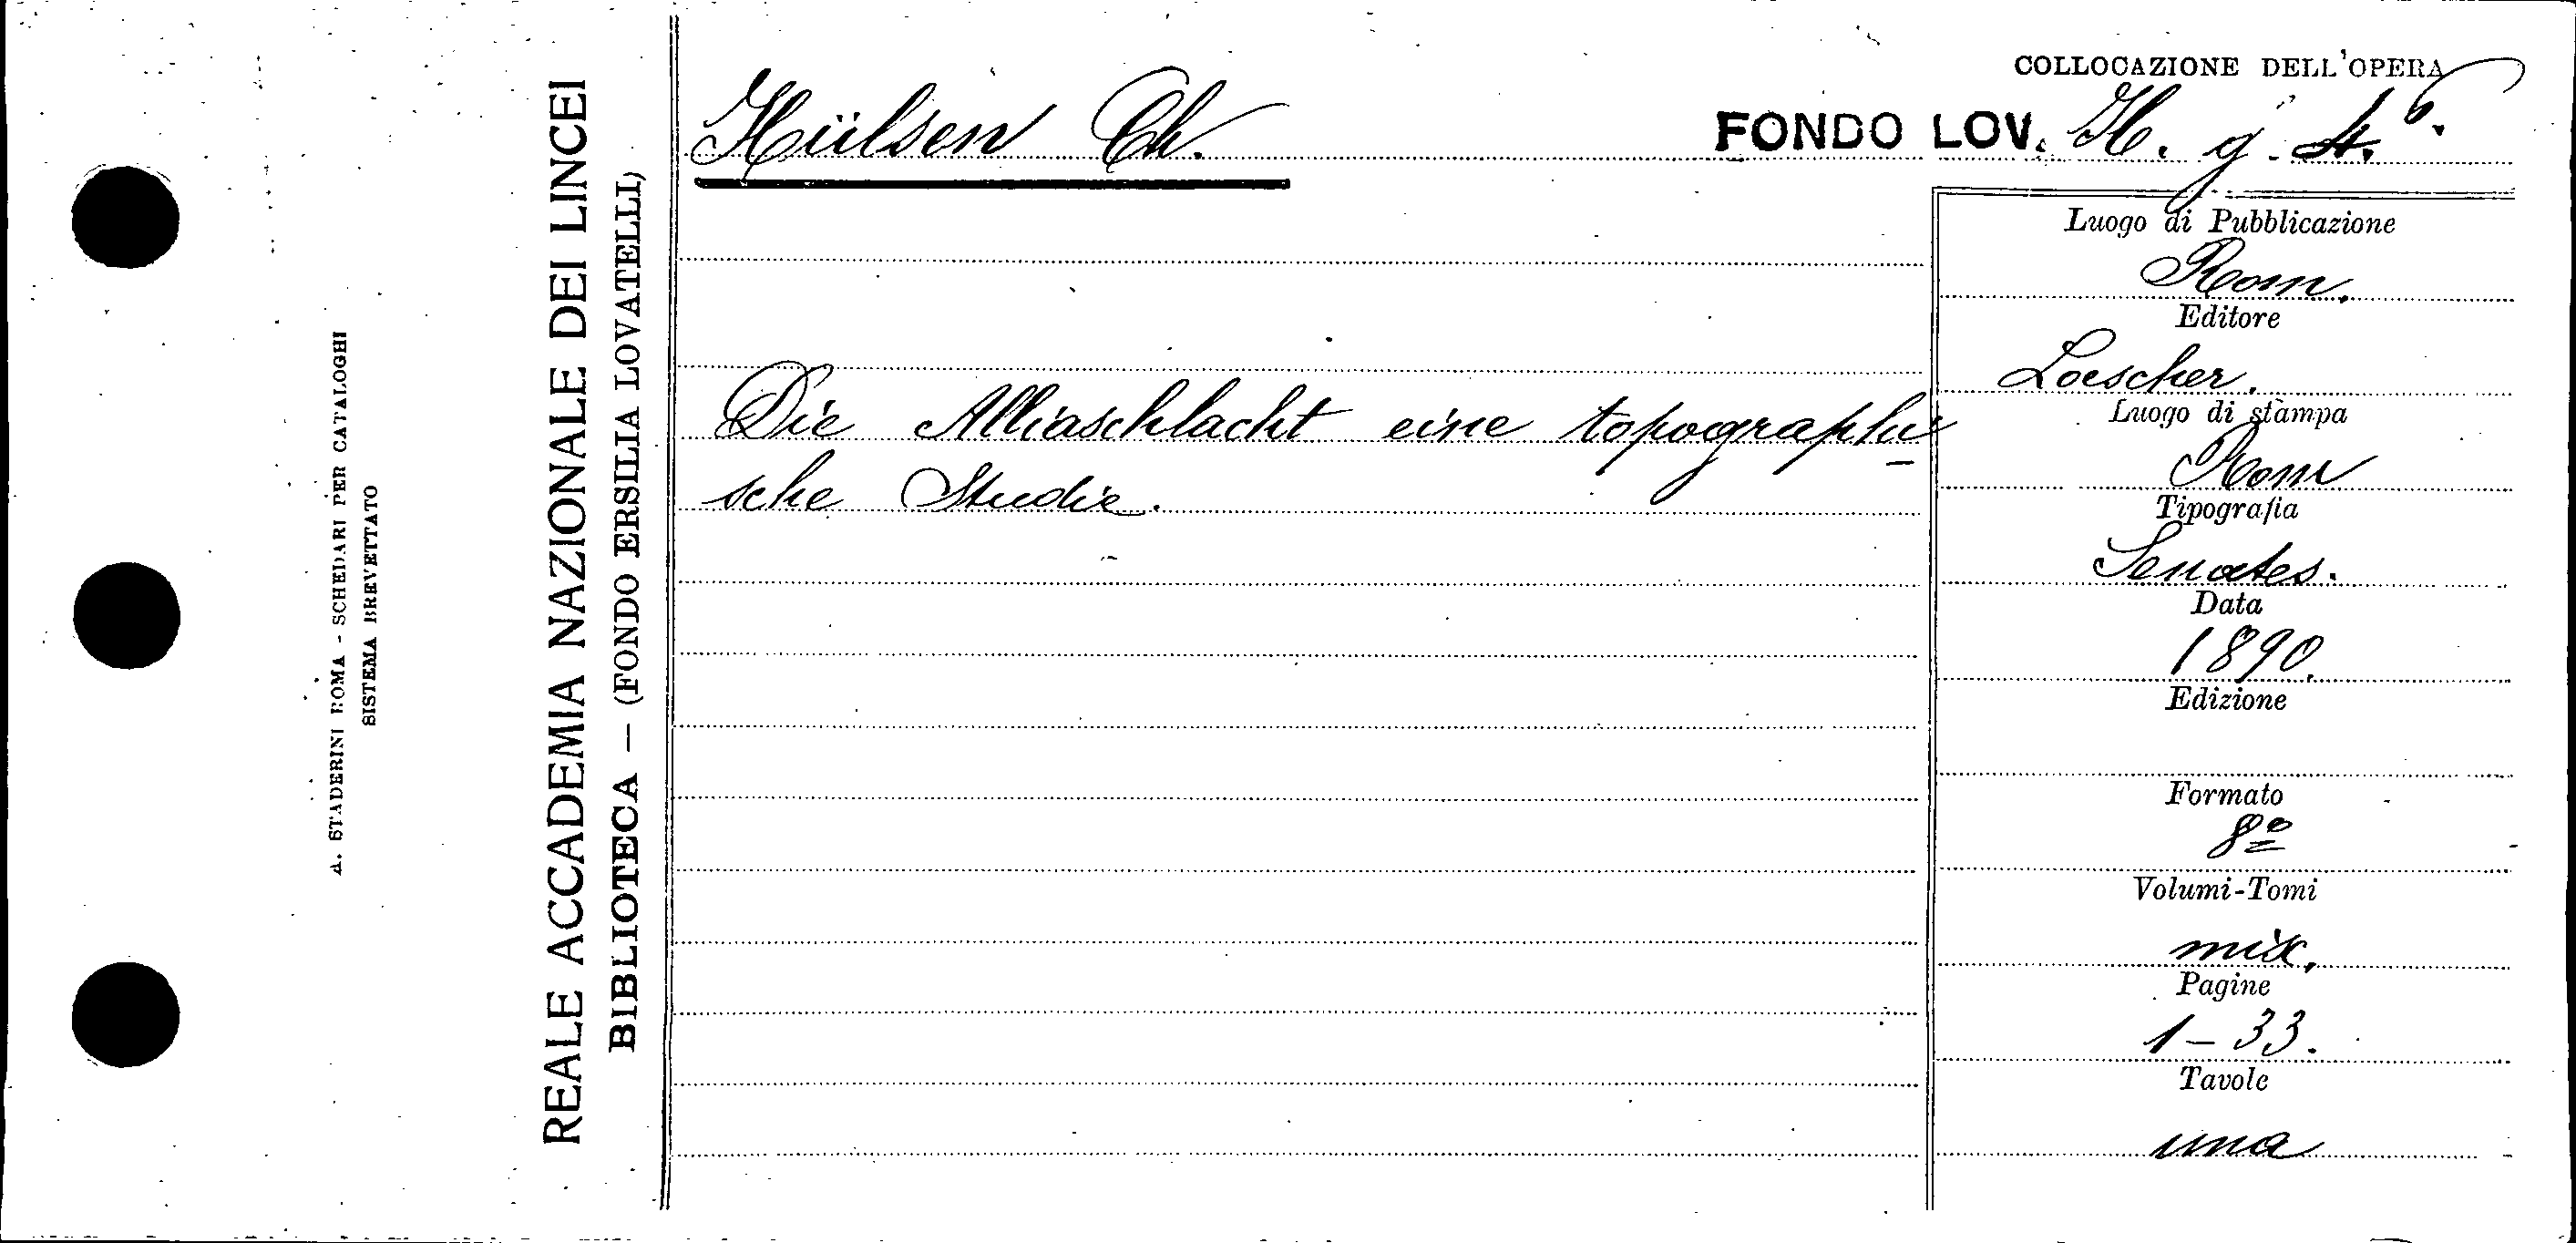 A. STADERINI ROMA - SCHEDARI PER CATALOGHI
SISTEMA BREVETTATO
REALE ACCADEMIA NAZIONALE DEI LINCEI
BIBLIOTECA — (FONDO ERSILIA LOVATELLI)
COLLOCAZIONE DELL'OPERA
FONDO LOV. H. g. 4. 6.
Hülsen Ch.
Die Alliaschlacht eine topographi-
sche Studie.
Luogo di Pubblicazione
Rom.
Editore
Loescher.
Luogo di stampa
Rom
Tipografia
Senates.
Data
1890.
Edizione
Formato
8º
Volumi-Tomi
Pagine
1-33.
Tavole
una